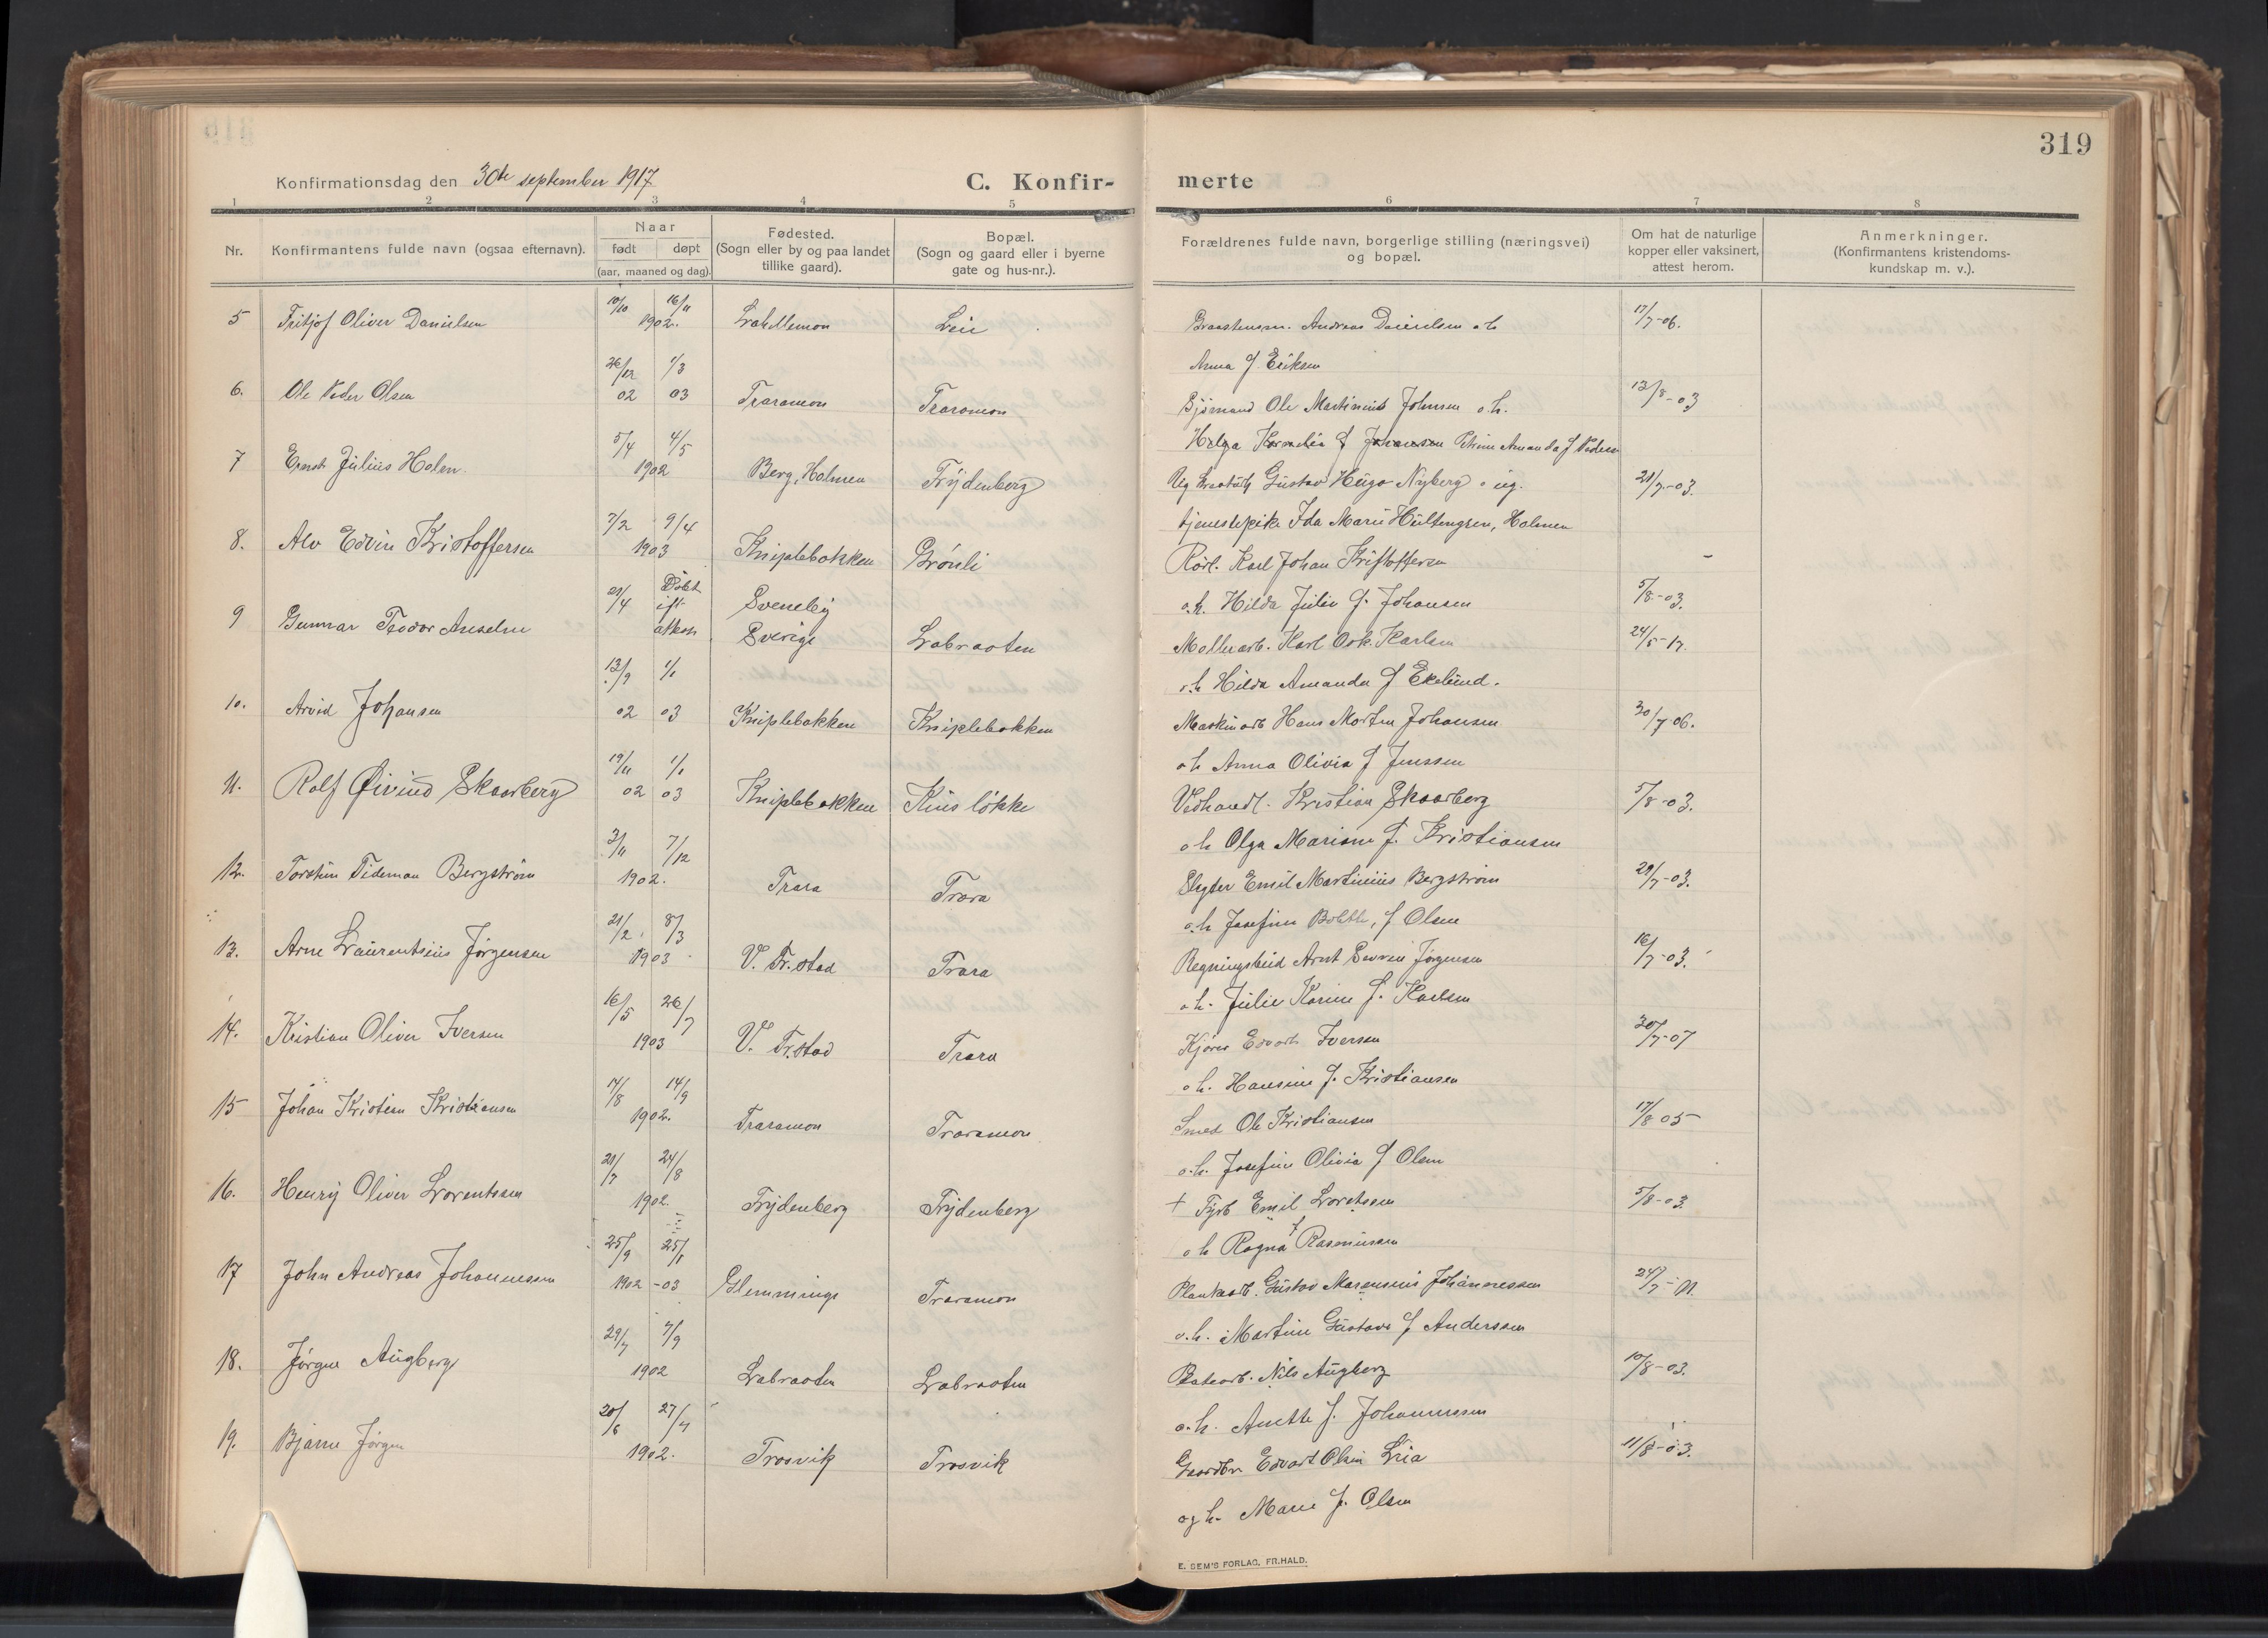 319
Konfirmationsdag den 30te september 1917
C. Konfir-
merte
1 2 3 4 5 6 7 8
Nr.
Konfirmantens fulde navn (ogsaa efternavn).
Naar
født døpt
(aar, maaned og dag).
Fødested.
(Sogn eller by og paa landet
tillike gaard).
Bopæl.
(Sogn og gaard eller i byerne
gate og hus-nr.).
Forældrenes fulde navn, borgerlige stilling (næringsvei)
og bopæl.
Om hat de naturlige
kopper eller vaksinert,
attest herom.
Anmerkninger.
(Konfirmantens kristendoms-
kundskap m. v.).
5 Fritjof Oliver Danielsen 10/10 16/11 1902. Lie Andreas Danielsen o h 17/7-06.
Anna f Eriksen
6. Ole Peder Olsen 26/12 02 1/3 03 Traramon Traramon Sjømand Ole Martinius Johnsen o.h. 12/8-03
Helga f Johansen Petrine Amanda f Pedersen
7 Ernst Julius Holm 5/4 4/5 1902 Berg, Holmen Frydenberg Gustav Hugo Nyberg o ug. 21/7-03.
tjenestepike Ida Marie Hultengren, Holmen
8. Alv Edvin Kristoffersen 7/2 9/4 1903 Kniplebakken Grønli Rørl. Karl Johan Kristoffersen -
o.h. Hilda Julie f. Johansen 5/8-03.
9 Gunnar Teodor Anselm 21/4 Døbt ift attest Sverige Labraaten Mølleearb. Karl Osk. Karlsen 24/5-17.
o h Hilda Amanda f Ekelund.
10. Arvid Johansen 13/9 02 1/1 03 Kniplebakken Kniplebakken Maskinarb Hans Morten Johansen 30/7 06.
o h Anna Olivia f Jenssen
11. Rolf Øivind Skaarberg 19/11 02 1/1 03 Kniplebakken Kuusløkke Vedhandl. Kristian Skaarberg 5/8-03.
o h Olga Mariane f. Kristiansen
12. Torstein Tideman Bergstrøm 3/11 7/12 1902. Trara Trara Slgter Emil Martinius Bergstrøm 29/7-03.
o.h. Josefine Bolette, f Olsen
13. Arne Laurentsius Jørgensen 21/2 8/3 1903 V. Fr.stad Trara Regningsbud Arnt Severin Jørgensen 16/7-03.
o h. Julie Karine f. Karlsen
14. Kristian Oliver Iversen 16/5 26/7 1903 V. Fr.stad Trara Kjører Edvart Iversen 30/7-07
o h. Hansine f. Kristiansen
15 Johan Kristian Kristiansen 17/8 14/9 1902. Traramon Traramon Smed Ole Kristiansen 17/8 05
o.h. Josefine Olivia f Olsen
16. Henry Oliver Lorentssen 21/7 24/8 1902. Frydenberg Frydenberg + Fyrb Emil Lorentssen 5/8-03.
o h Ragna f Rasmussen
17 John Andreas Johannessen 25/9 25/1 1902-03 Glemminge Traramon Plankearb. Gustav Marensius Johannessen 24/7-11.
o.h. Martine Gustava f Anderssen
18. Jørgen Augberg 29/7 7/9 1902 Labraaten Labraaten Nils Augberg 10/8-03.
o.h. Anette f. Johannessen
19. Bjarne Jørgen 20/6 27/7 1902. Trosvik Trosvik Gaardbr Edvart Olsen Lria 11/8-03.
og h. Marie f. Olsen
E. SEM'S FORLAG, FR.HALD.